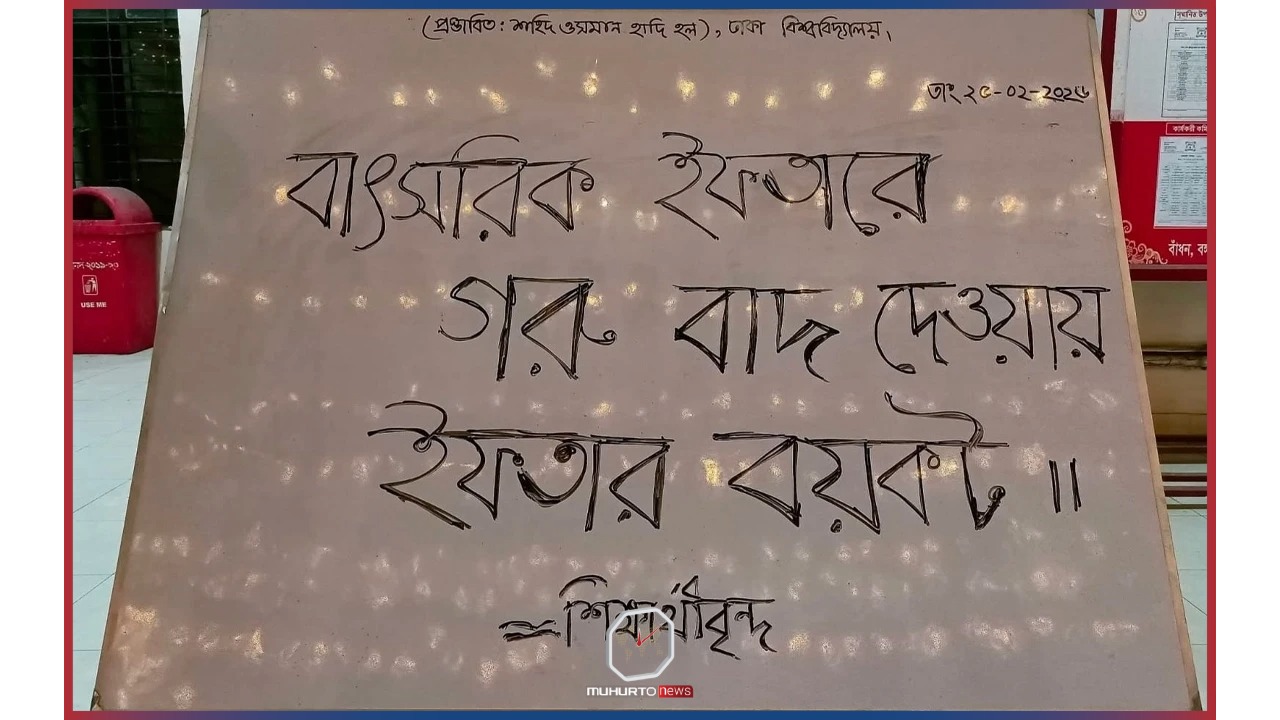 (প্রস্তাবিত: শহিদ ওসমান হাদি হল), ঢাকা বিশ্ববিদ্যালয়,
তাং ২৫-০২-২০২৬
বাৎসরিক ইফতারে
গরু বাদ দেওয়ায়
ইফতার বয়কট ॥
শিক্ষার্থীবৃন্দ
USE ME
কার্যকরী কমি
বাঁধন, বঙ্গ
MUHURTO news